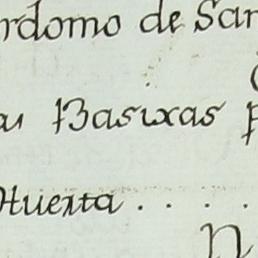 rdomo de San
as Basixas p
Huerta . . . .